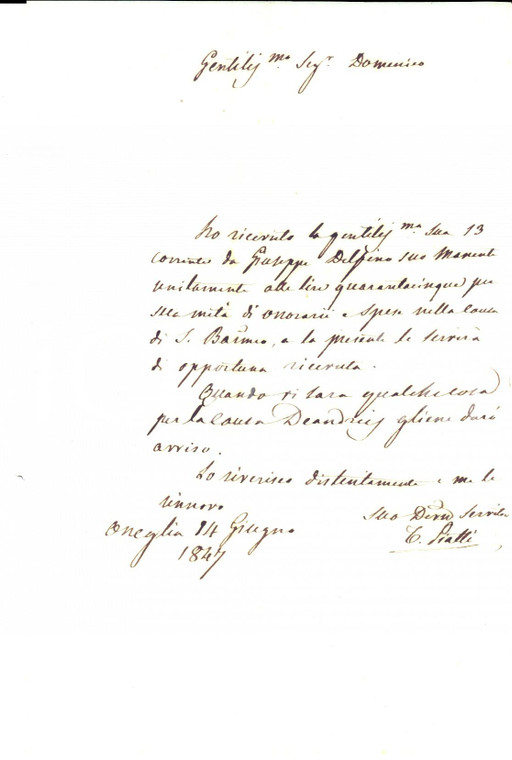 Gentiliss.ma Sig.r Domenico
Ho ricevuto la gentiliss.ma sua 13
corrente da Giuseppe Delfino suo Manente
unitamente alle lire quarantacinque per
sua metà di onorarii e spese nella causa
di S. Barmeo, e la presente le servirà
di opportuna ricevuta.
Quando vi sarà qualche cosa
per la causa Deandreis gliene darò
avviso.
Lo riverisco distintamente e me le
rinnovo
Oneglia 14 Giugno
1847
Suo Dev.mo Servitore